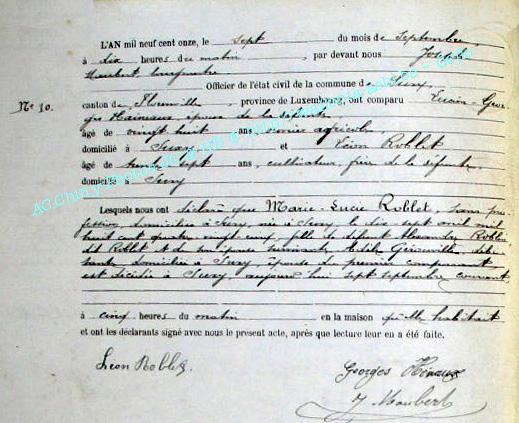 L'AN mil neuf cent onze, le sept du mois de Septembre,
à dix heures du matin, par devant nous Joseph
Maubert bourgmestre
Officier de l'état civil de la commune de Suxy,
N° 10. canton de Florenville, province de Luxembourg, ont comparu Lucien-Geor-
ges Hainaux époux de la défunte
âgé de vingt huit ans, ouvrier agricole,
domicilié à Suxy, et Léon Roblet
âgé de trente sept ans, cultivateur, frère de la défunte
domicilié à Suxy
Lesquels nous ont déclaré que Marie-Lucie Roblet, sans pro-
fession, domiciliée à Suxy, née à Suxy le dix sept avril mil
huit cent quatre vingt, fille de défunt Alexandre
Roblet et de son épouse survivante,
domiciliée à Suxy, épouse du premier comparant,
est décédée à Suxy, aujourd'hui sept septembre courant,
à cinq heures du matin en la maison qu'elle habitait
et ont les déclarants signé avec nous le présent acte, après que lecture leur en a été faite.
Léon Roblet. Georges Hénaux
J. Maubert
AC Chiny Photos